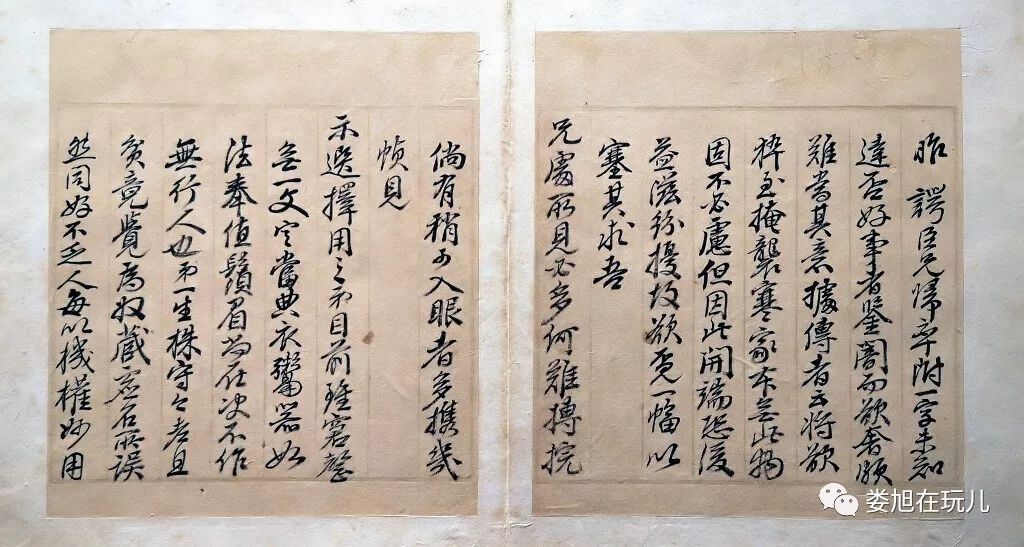 昨諤臣兄歸率附一字未知
達否好事者鑒闇而欲奢頗
難當其意據傳者云將欲
猝至掩襲寒家本無此物
固不必慮但因此開端恐後
益滋紛擾故欲覓一幅以
塞其求吾
兄處所見必多何難摶捖
倘有稍可入眼者多携幾
幀見
示選擇用之弟目前雖窘罄
無一文定當典衣鬻器如
法奉值鬚眉尚在决不作
無行人也弟一生株守之者且
貧竟覺為奴藏虛名所誤
然同好不乏人每以機權妙用
娄旭在玩儿